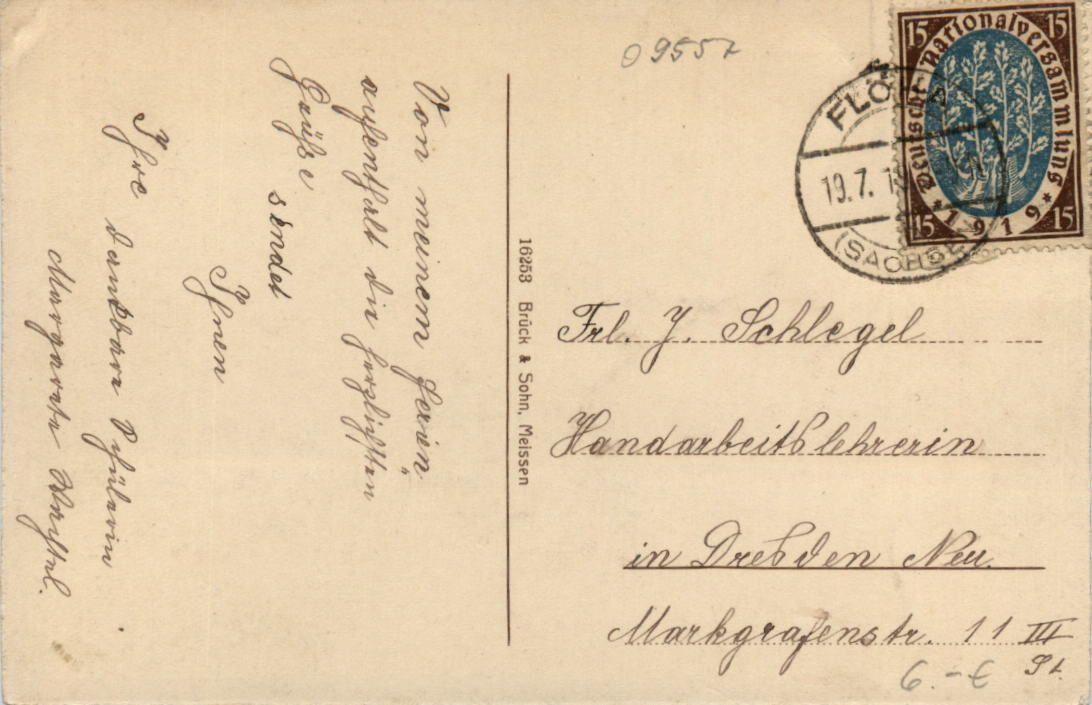 09557
Von meinem Ferien
aufenthalt die herzlichsten
Grüße sendet
Ihnen
Ihre dankbare Schülerin
Margarete
16253 Brück & Sohn, Meissen
15 15
Deutsche Nationalversammlung
* 1919 *
15 15
FLÖHA
19.7.
(SACHSEN)
Frl. J. Schlegel
Handarbeitslehrerin
in Dresden Neu.
Markgrafenstr. 11 III
St.
6.-€